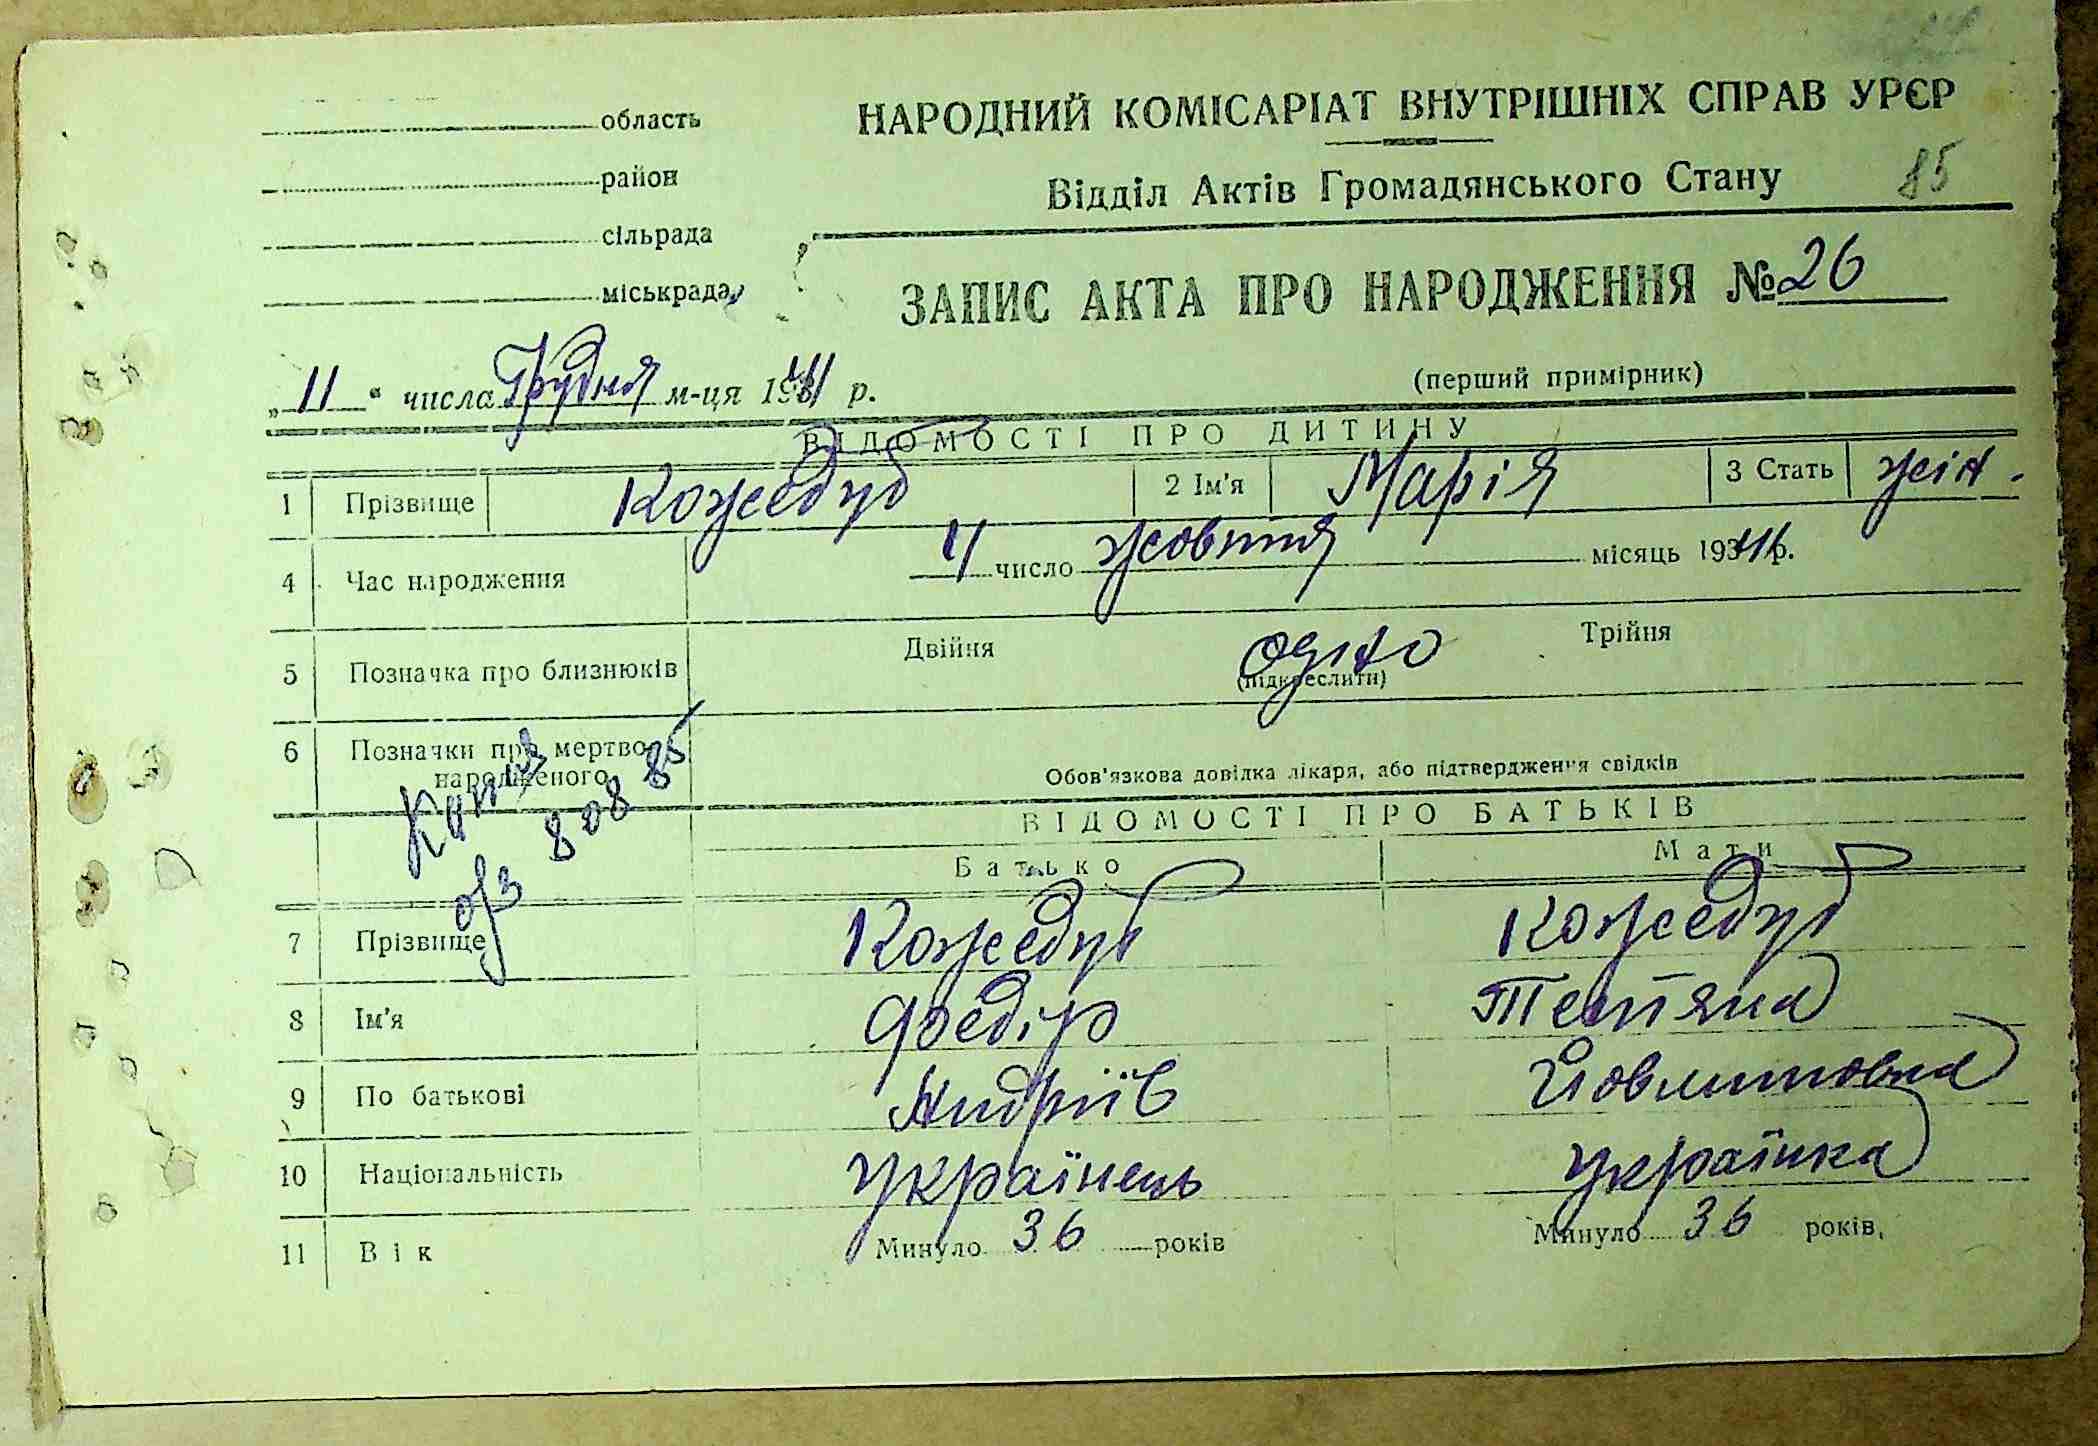 область
НАРОДНИЙ КОМІСАРІАТ ВНУТРІШНІХ СПРАВ УРЄР
район
Відділ Актів Громадянського Стану 85
сільрада
міськрада
ЗАПИС АКТА ПРО НАРОДЖЕННЯ № 26
„11“ числа Грудня м-ця 1941 р.
(перший примірник)
ВІДОМОСТІ ПРО ДИТИНУ
1 Прізвище Кожедуб 2 Ім'я Марія 3 Стать жін.
4 Час народження 11 число жовтня місяць 1941 р.
5 Позначка про близнюків Двійня одно Трійня
(підкреслити)
6 Позначки про мертво народженого Обов'язкова довідка лікаря, або підтвердження свідків
8 08 85
ВІДОМОСТІ ПРО БАТЬКІВ
Батько Мати
7 Прізвище Кожедуб Кожедуб
8 Ім'я Федір Тетяна
9 По батькові Андріїв
10 Національність українець українка
11 Вік Минуло 36 років Минуло 36 років,